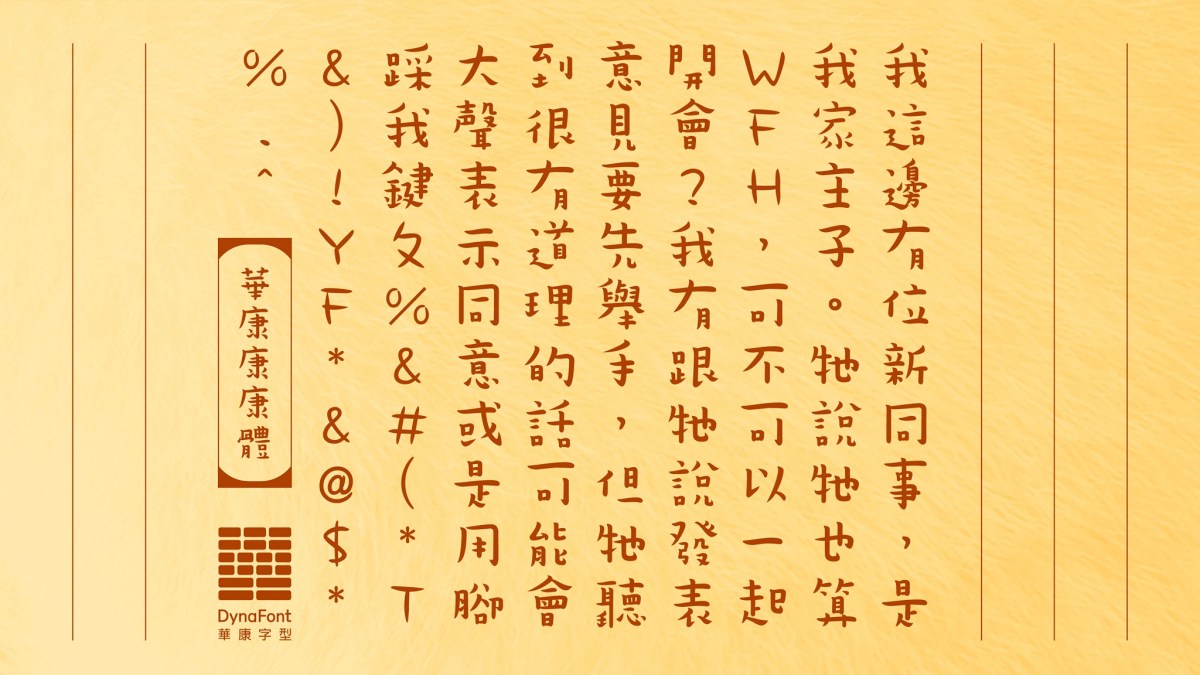 我這邊有位新同事，是
我家主子。牠說牠也算
WFH，可不可以一起
開會？我有跟牠說發表
意見要先舉手，但牠聽
到很有道理的話可能會
大聲表示同意或是用腳
踩我鍵ㄆ%&#(*T
&)!YF*&@$*
%.^
華康康康體
DynaFont
華康字型